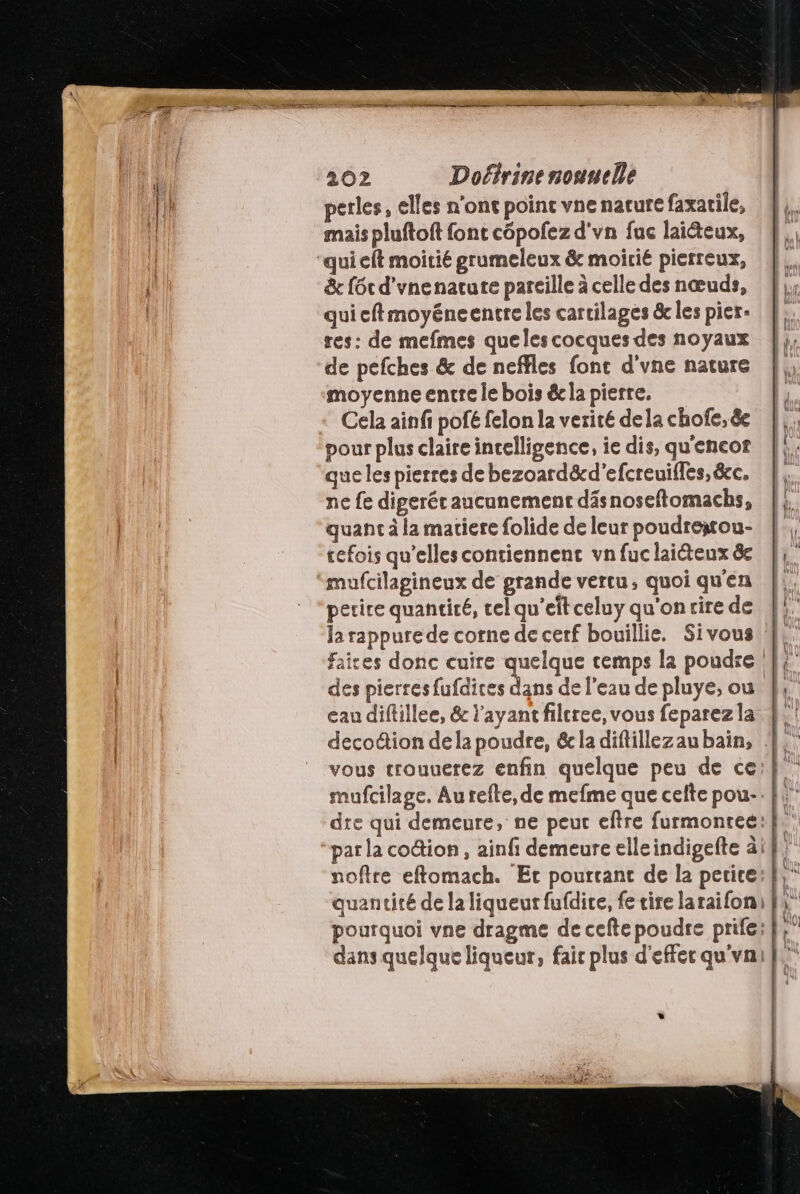 202 Doctrine nouuelle
perles, elles n'ont point vne nature saxatile,
mais plustost sont cõposez d'vn suc laicteux,
qui est moitié grumeleux & moitié pierreux,
& sõt d'vne nature pareille à celle des nœuds,
qui est moyẽne entre les cartilages & les pier-
res: de mesmes que les cocques des noyaux
de pesches & de neffles sont d'vne nature
moyenne entre le bois & la pierre.
Cela ainsi posé selon la verité de la chose, &
pour plus claire intelligence, ie dis, qu'encor
que les pierres de bezoard & d'escreuisses, &c.
ne se digerẽt aucunement dãs nos estomachs,
quant à la matiere solide de leur poudre, tou-
tefois qu'elles contiennent vn suc laicteux &
muscilagineux de grande vertu, quoi qu'en
petite quantité, tel qu'est celuy qu'on tire de
la rappure de corne de cerf bouillie. Si vous
faites donc cuire quelque temps la poudre
des pierres susdites dans de l'eau de pluye, ou
eau distillee, & l'ayant filtree, vous separez la
decoction de la poudre, & la distillez au bain,
vous trouuerez enfin quelque peu de ce
muscilage. Au reste, de mesme que ceste pou-
dre qui demeure, ne peut estre surmontee
par la coction, ainsi demeure elle indigeste à
nostre estomach. Et pourtant de la petite
quantité de la liqueur susdite, se tire la raison
pourquoi vne dragme de ceste poudre prise
dans quelque liqueur, fait plus d'effet qu'vn